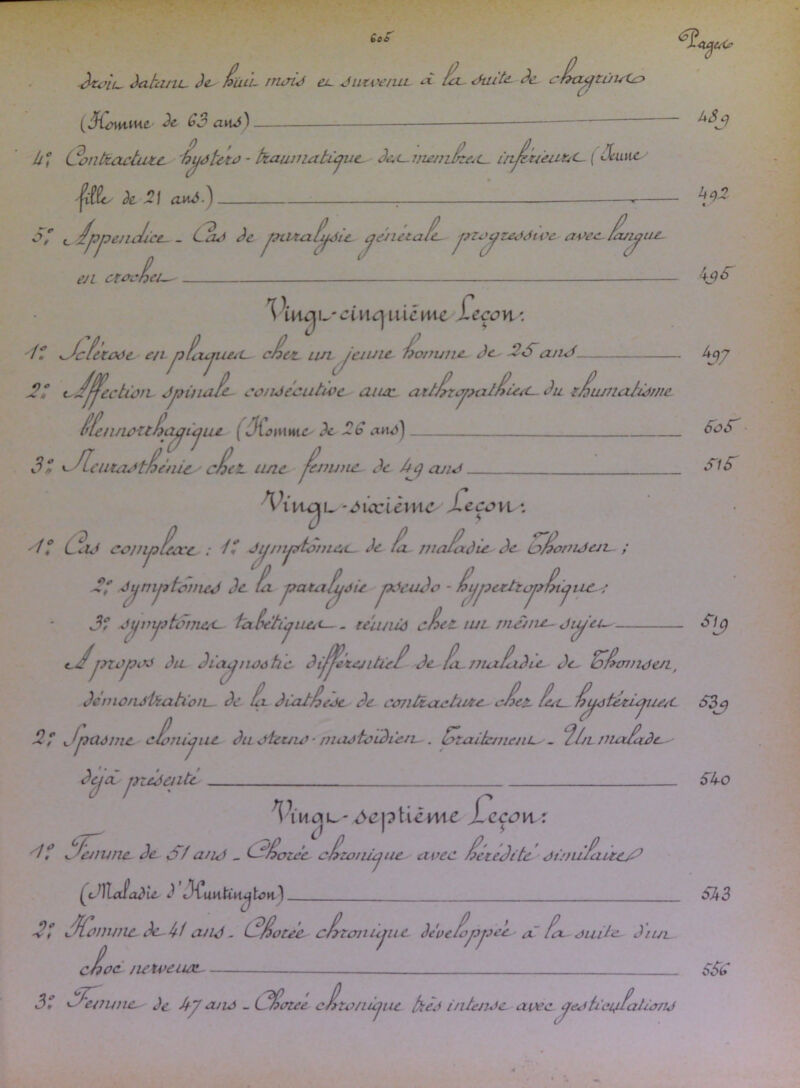 605
Pages
droit datant de huit mois et survenu à la suite de chagrins
(Homme de 63 ans) 489
4° Contracture hystéro-traumatique des membres inférieurs (Jeune
fille de 21 ans.) 492
5° Appendice - Cas de paralysie générale progressive avec langue
en crochet 495
Vingt-cinquième Leçon:
1° Sclérose en plaques chez un jeune homme de 25 ans 497
2° Affection spinale consécutive aux arthropathies du rhumatisme
blennorrhagique (Homme de 26 ans) 505
3° Neurasthénie chez une femme de 49 ans 515
Vingt-sixième Leçon:
1° Cas complexe : 1° Symptômes de la maladie de Thomsen ;
2° Symptômes de la paralysie pseudo-hypertrophique ;
3° Symptômes tabétiques - réunis chez un même sujet 519
A propos du diagnostic différentiel de la maladie de Thomsen,
démonstration de la diathèse de contracture chez les hystériques 539
2° Spasme clonique du sterno-mastoïdien. Traitement - Un malade
déjà présenté 540
Vingt-septième Leçon:
1° Femme de 51 ans - Chorée chronique avec hérédité similaire
(Maladie d'Huntington) 543
2° Homme de 41 ans - Chorée chronique développée à la suite d'un
choc nerveux 556
3° Femme de 47 ans - Chorée chronique très intense avec gesticulations